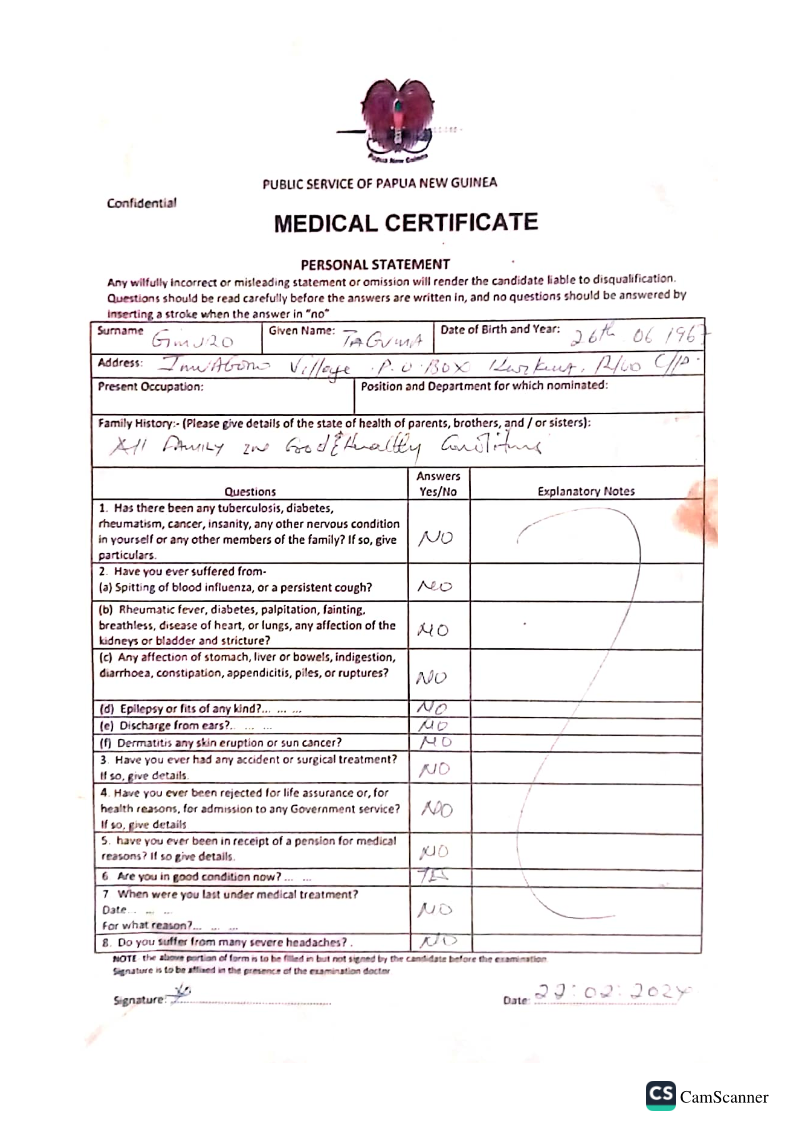 Papua New Guinea
PUBLIC SERVICE OF PAPUA NEW GUINEA
Confidential
MEDICAL CERTIFICATE
PERSONAL STATEMENT
Any wilfully incorrect or misleading statement or omission will render the candidate liable to disqualification.
Questions should be read carefully before the answers are written in, and no questions should be answered by
inserting a stroke when the answer in "no"
Surname Given Name: TAGUMA Date of Birth and Year: 26th 06 1967
Address: Village P.O. BOX
Present Occupation: Position and Department for which nominated:
Family History:- (Please give details of the state of health of parents, brothers, and / or sisters):
All FAMILY in Good & Healthy Conditions
Questions Answers Yes/No Explanatory Notes
1. Has there been any tuberculosis, diabetes,
rheumatism, cancer, insanity, any other nervous condition
in yourself or any other members of the family? If so, give
particulars. NO
2. Have you ever suffered from-
(a) Spitting of blood influenza, or a persistent cough? NO
(b) Rheumatic fever, diabetes, palpitation, fainting,
breathless, disease of heart, or lungs, any affection of the
kidneys or bladder and stricture? NO
(c) Any affection of stomach, liver or bowels, indigestion,
diarrhoea, constipation, appendicitis, piles, or ruptures? NO
(d) Epilepsy or fits of any kind?... ... ... NO
(e) Discharge from ears?.. ... ... NO
(f) Dermatitis any skin eruption or sun cancer? NO
3. Have you ever had any accident or surgical treatment?
If so, give details. NO
4. Have you ever been rejected for life assurance or, for
health reasons, for admission to any Government service?
If so, give details NO
5. have you ever been in receipt of a pension for medical
reasons? If so give details. NO
6 Are you in good condition now? ... ... YES
7 When were you last under medical treatment?
Date... ... ...
For what reason?... ... ... NO
8. Do you suffer from many severe headaches? . NO
NOTE the above portion of form is to be filled in but not signed by the candidate before the examination
Signature is to be affixed in the presence of the examination doctor
Signature: Date: 22:02:2024
CS CamScanner